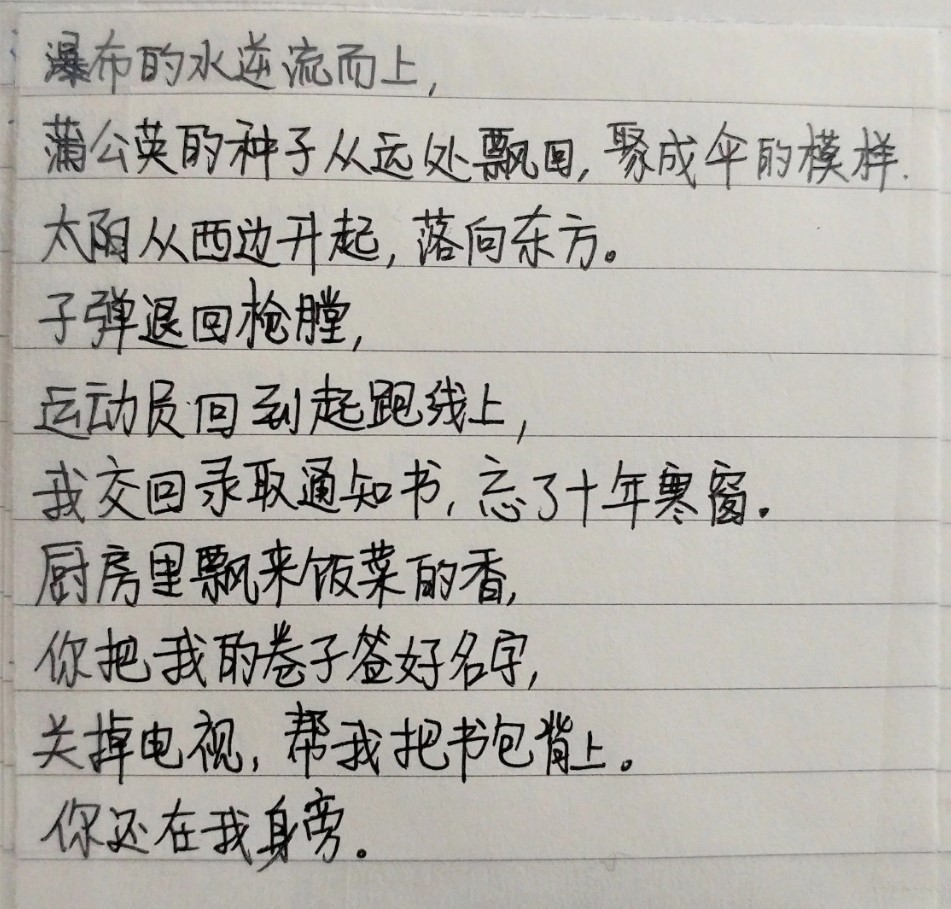 瀑布的水逆流而上,
蒲公英的种子从远处飘回,聚成伞的模样.
太阳从西边升起,落向东方。
子弹退回枪膛,
运动员回到起跑线上,
我交回录取通知书,忘了十年寒窗.
厨房里飘来饭菜的香,
你把我的卷子签好名字,
关掉电视,帮我把书包背上。
你还在我身旁。